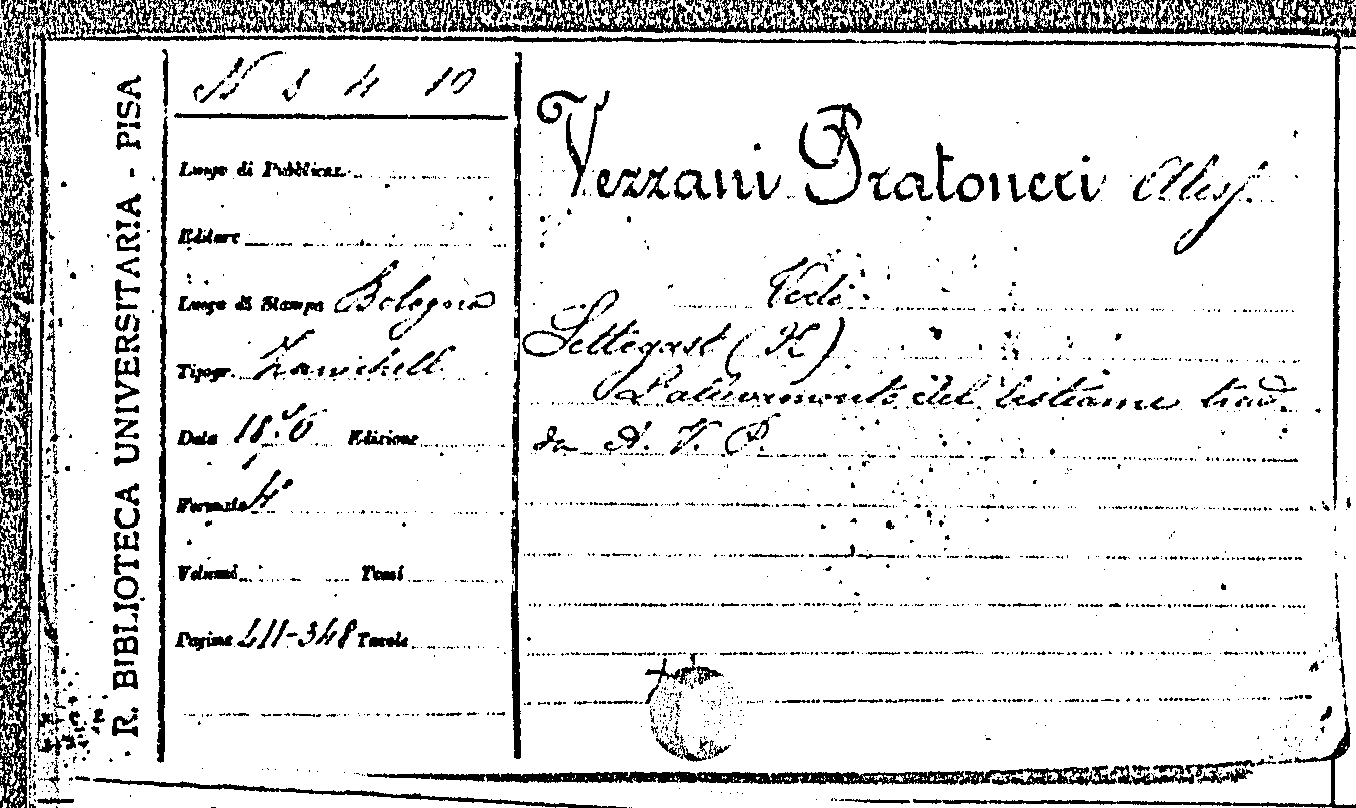 R. BIBLIOTECA UNIVERSITARIA - PISA
N 3 4 10
Luogo di Pubblicaz.
Editore
Luogo di Stampa Bologna
Tipogr. Zanichelli
Data 1876 Edizione
Formato 4°
Volumi Tomi
Pagine LII-348 Tavole
Vezzani Pratoneri Aless.
Vedi
Settegast (H)
L'allevamento del bestiame trad.
da A. V. P.